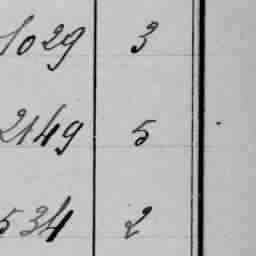 1029 3
2149 5
534 2